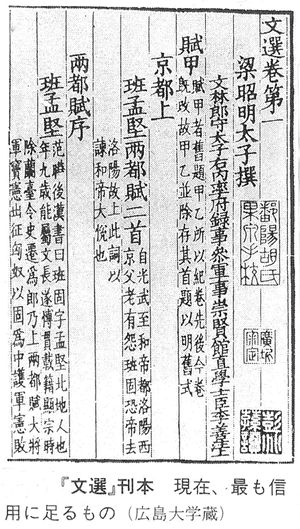 文選卷第一
梁昭明太子撰
文林郎守太子右內率府錄事參軍事崇賢館直學士臣李善注
賦甲
賦甲者舊題甲乙所以紀卷先後今卷
既改故甲乙並除存其首題以明舊式
京都上
班孟堅兩都賦二首
自光武至和帝都洛陽西
京父老有怨班固恐帝去
洛陽故上此詞以
諫和帝大悅也
兩都賦序
班孟堅
范曄後漢書曰班固字孟堅北地人也
年九歲能屬文長遂博貫載籍顯宗時
除蘭臺令史遷為郎乃上兩都賦大將
軍竇憲出征匈奴以固為中護軍憲敗
鄱陽胡氏
果泉校
『文選』刊本　現在、最も信
用に足るもの（広島大学蔵）